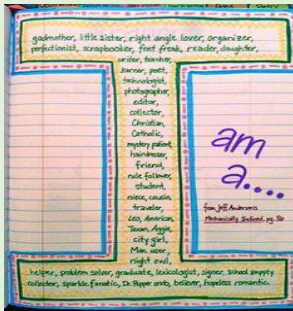 godmother, little sister, right angle lover, organizer,
perfectionist, scrapbooker, font freak, reader, daughter,
writer, teacher,
learner, poet,
technologist,
photographer,
editor,
collector,
Christian,
Catholic,
mystery patient,
hairdresser,
friend,
rule follower,
student,
niece, cousin,
traveler,
Leo, American,
Texan, Aggie,
city girl,
Mac user,
night owl,
helper, problem solver, graduate, lexicologist, signer, school supply
collector, sparkle fanatic, Dr. Pepper addict, believer, hopeless romantic.
am
a....
from Jeff Anderson's
Mechanically Inclined, pg.